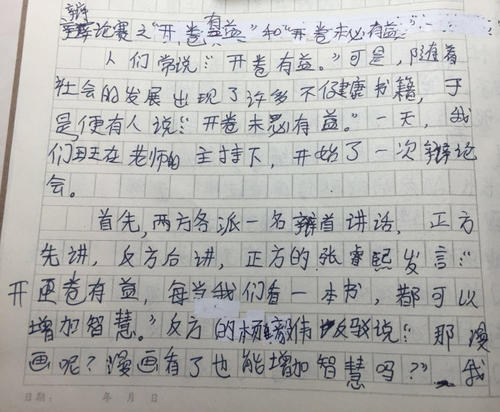 辩论赛之“开卷有益”和“开卷未必有益”
人们常说:“开卷有益。”可是,随着
社会的发展出现了许多不健康书籍,于
是便有人说:“开卷未必有益。”一天,我
们班在老师的主持下,开始了一次辩论
会。
首先,两方各派一名辩首讲话,正方
先讲,反方后讲,正方的张睿熙发言:“
开卷有益,每当我们看一本书,都可以
增加智慧。”反方的 反驳说:“那漫
画呢?漫画看了也能增加智慧吗?”我
日期: 年 月 日